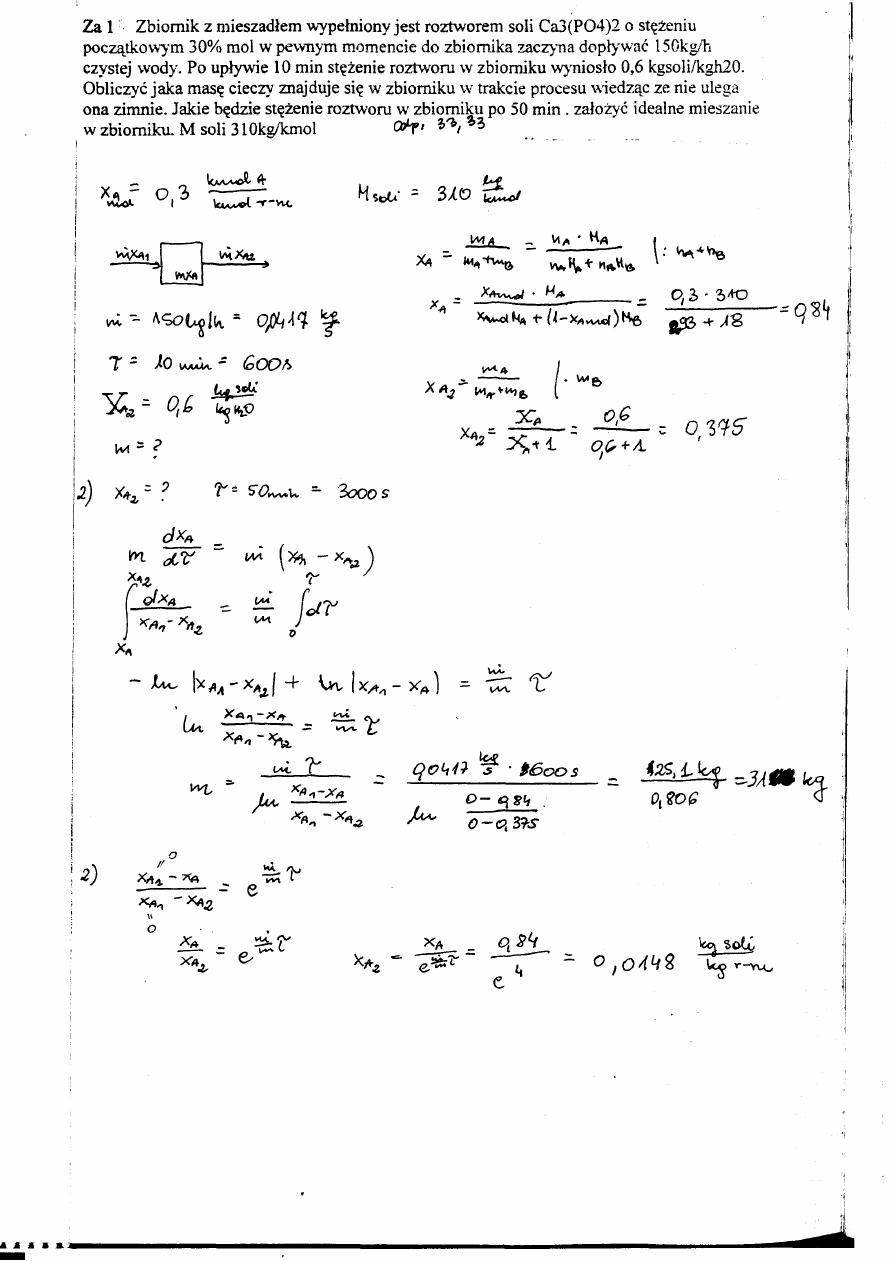 Za 1 Zbiornik z mieszadłem wypełniony jest roztworem soli Ca3(PO4)2 o stężeniu
początkowym 30% mol w pewnym momencie do zbiornika zaczyna dopływać 150kg/h
czystej wody. Po upływie 10 min stężenie roztworu w zbiorniku wyniosło 0,6 kgsoli/kgh20.
Obliczyć jaka masę cieczy znajduje się w zbiorniku w trakcie procesu wiedząc ze nie ulega
ona zimnie. Jakie będzie stężenie roztworu w zbiorniku po 50 min . założyć idealne mieszanie
w zbiorniku. M soli 310kg/kmol odp. 33,33
xA mol = 0,3 kmol A / kmol r-ru M soli = 310 kg/kmol
ṁxA1 mxA ṁxA2
xA = mA / (mA+mB) = nA · MA / (nAMA + nBMB) |: nA+nB
xA = xAmol · MA / (xAmol MA + (1-xAmol)MB) = 0,3 · 310 / (93 + 18) = 0,84
ṁ = 150kg/h = 0,0417 kg/s
τ = 10 min = 600s
XA2 = 0,6 kg soli / kg H2O
m = ?
xA2 = mA / (mA+mB) |· mB
xA2 = XA / (XA + 1) = 0,6 / (0,6 + 1) = 0,375
2) xA2 = ? τ = 50min = 3000 s
m dxA/dτ = ṁ (xA1 - xA2)
∫ xA xA2 dxA / (xA1 - xA2) = ṁ/m ∫ 0 τ dτ
- ln |xA1 - xA2| + ln |xA1 - xA| = ṁ/m τ
ln (xA1 - xA) / (xA1 - xA2) = ṁ/m τ
m = ṁ τ / ln (xA1 - xA)/(xA1 - xA2) = 0,0417 kg/s · 600s / ln (0 - 0,84)/(0 - 0,375) = 25,1 kg / 0,806 = 31 kg
2) (xA1 - xA) / (xA1 - xA2) = e^(ṁ/m τ)
xA / xA2 = e^(ṁ/m τ) xA2 = xA / e^(ṁ/m τ) = 0,84 / e^4 = 0,0148 kg soli / kg r-ru